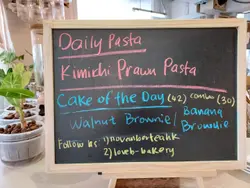 Daily Pasta
Kimichi Prawn Pasta
Cake of the Day (42) combo (30)
Walnut Brownie / Banana Brownie
Follow us: 1) novemberteahk
2) loveb-bakery